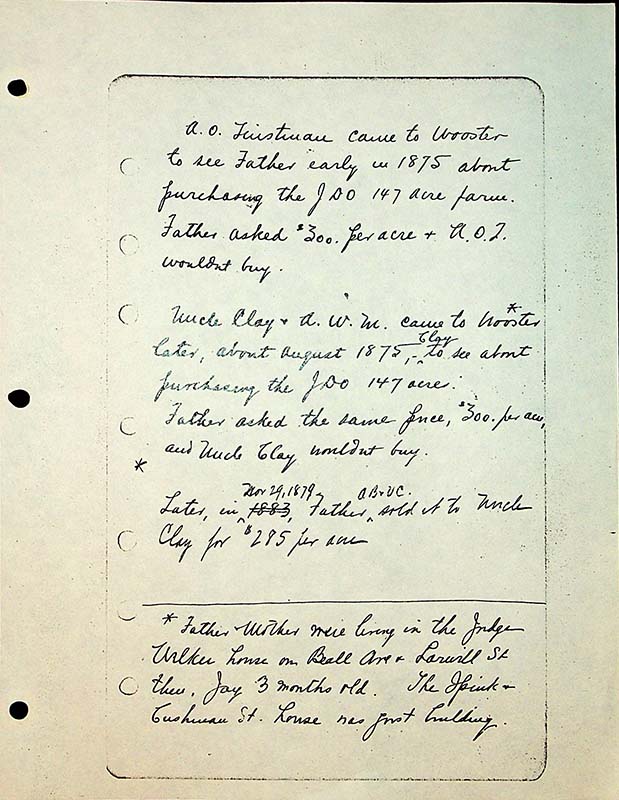 A. O. Finstman came to Wooster
to see Father early in 1875 about
purchasing the JDO 147 acre farm.
Father asked $300. per acre + A. O. F.
wouldnt buy.
Uncle Clay + A. W. M. came to Wooster *
Clay
later, about August 1875, - to see about
purchasing the JDO 147 acres.
Father asked the same price, $300. per acre,
and Uncle Clay wouldnt buy.
*
Nov 29, 1879, AB+UC.
Later, in 1883, Father, sold it to Uncle
Clay for $285 per acre
* Father + Mother were living in the Judge
house on Beall Ave + Larwill St
then, Jay 3 months old. The Spink +
Cushman St. house was just building.